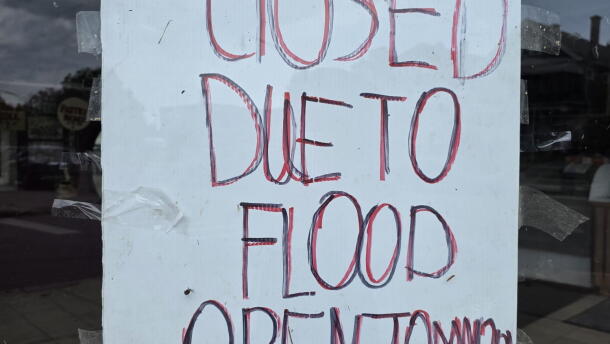 CLOSED
DUE TO
FLOOD
OPEN